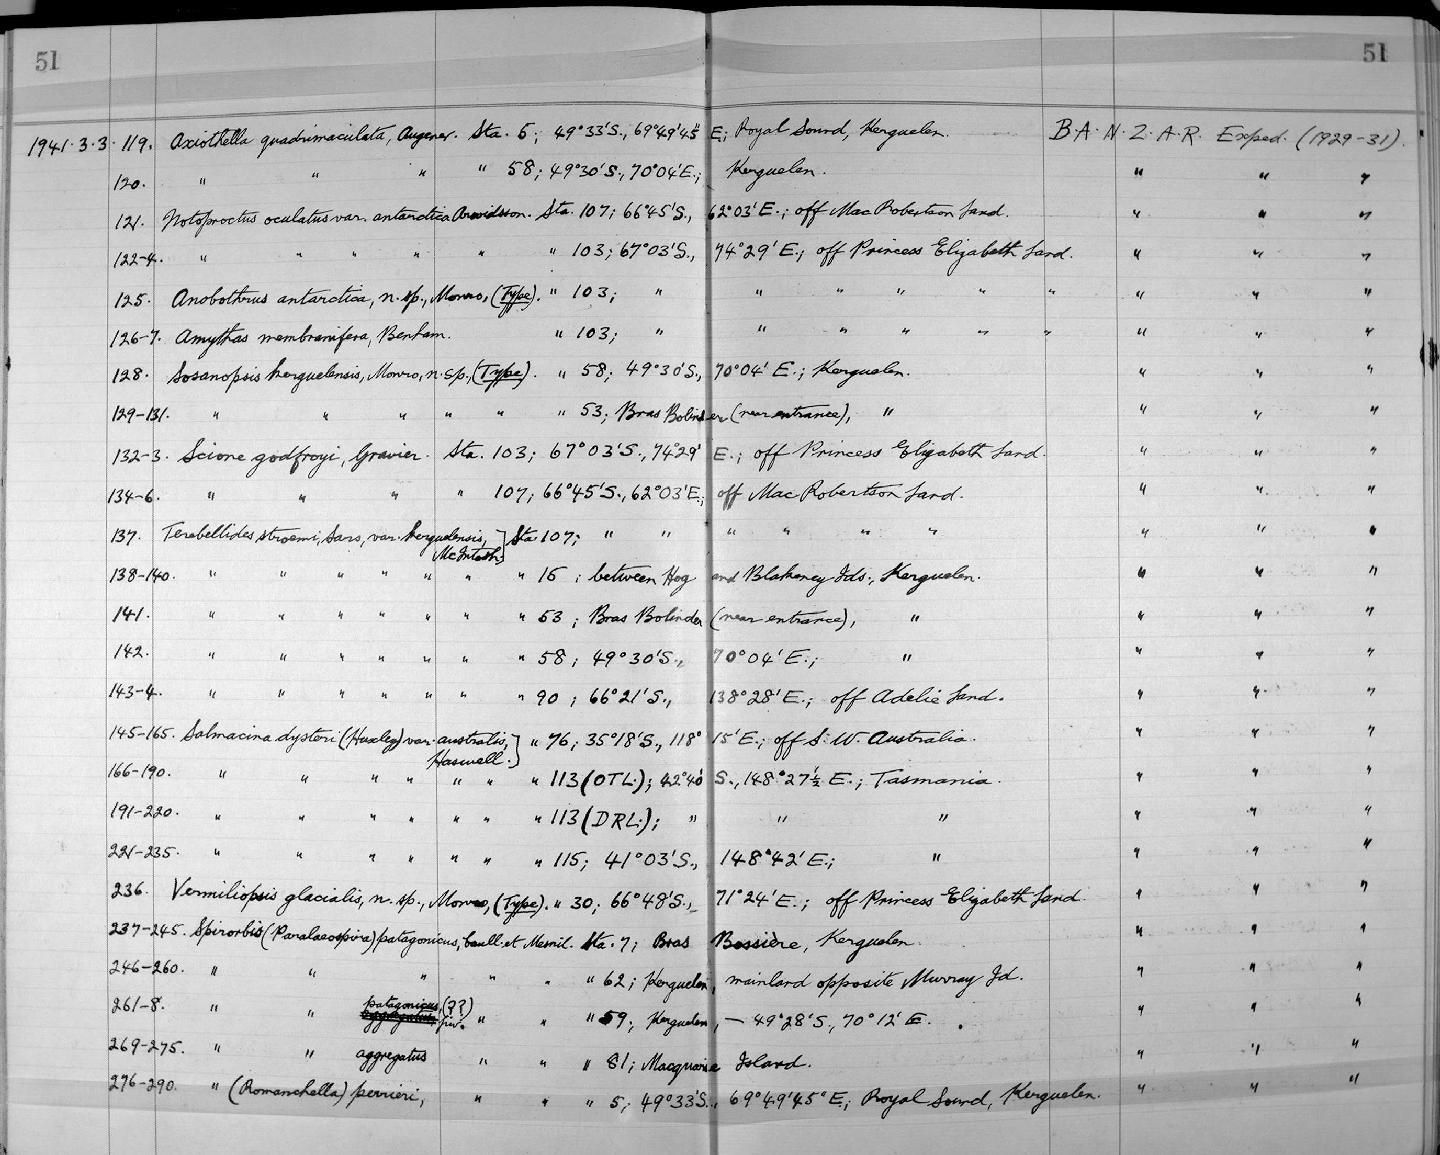 51 51
1941.3.3.119. Axiothella quadrimaculata, Augener. Sta. 5; 49°33'S., 69°49'45" E; Royal Sound, Kerguelen. B.A.N.Z.A.R. Exped. (1929-31).
120. " " " " 58; 49°30'S., 70°04'E.; Kerguelen. " " "
121. Notoproctus oculatus var. antarctica Arwidsson. Sta. 107; 66°45'S., 62°03'E.; off Mac Robertson Land. " " "
122-4. " " " " " " 103; 67°03'S., 74°29'E.; off Princess Elizabeth Land. " " "
125. Anobothrus antarctica, n. sp., Monro, (Type). " 103; " " " " " " " " "
126-7. Amythas membranifera, Benham. " 103; " " " " " " " " "
128. Sosanopsis kerguelensis, Monro, n. sp., (Type). " 58; 49°30'S., 70°04'E.; Kerguelen. " " "
129-131. " " " " " " 53; Bras Bolinder (near entrance), " " " "
132-3. Scione godfroyi, Gravier. Sta. 103; 67°03'S., 74°29' E.; off Princess Elizabeth Land. " " "
134-6. " " " " 107; 66°45'S., 62°03'E.; off Mac Robertson Land. " " "
137. Terebellides stroemi, Sars, var. kerguelensis, Sta 107; " " " " " " " " "
McIntosh.
138-140. " " " " " " " 15; between Hog and Blakeney Ids., Kerguelen. " " "
141. " " " " " " " 53; Bras Bolinder (near entrance), " " " "
142. " " " " " " " 58; 49°30'S., 70°04'E.; " " " "
143-4. " " " " " " " 90; 66°21'S., 138°28'E.; off Adelie Land. " " "
145-165. Salmacina dysteri (Huxley) var. australis, " 76; 35°18'S., 118° 15'E.; off S. W. Australia. " " "
Haswell.
166-190. " " " " " " " 113 (OTL); 42°40' S., 148°27½ E.; Tasmania. " " "
191-220. " " " " " " " 113 (DRL.); " " " " " "
221-235. " " " " " " " 115; 41°03'S., 148°42'E.; " " " "
236. Vermiliopsis glacialis, n. sp., Monro, (Type). " 30; 66°48'S., 71°24'E.; off Princess Elizabeth Land. " " "
237-245. Spirorbis (Paralaeospira) patagonicus, Caull. et Mesnil. Sta. 7; Bras Bossière, Kerguelen. " " "
246-260. " " " " " " 62; Kerguelen, mainland opposite Murray Id. " " "
261-8. " " patagonicus, (??) " " " 59; Kerguelen, — 49°28'S., 70°12'E. " " "
269-275. " " aggregatus " " " 81; Macquarie Island. " " "
276-290. " (Romanchella) perrieri, " " " 5; 49°33'S., 69°49'45"E.; Royal Sound, Kerguelen. " " "